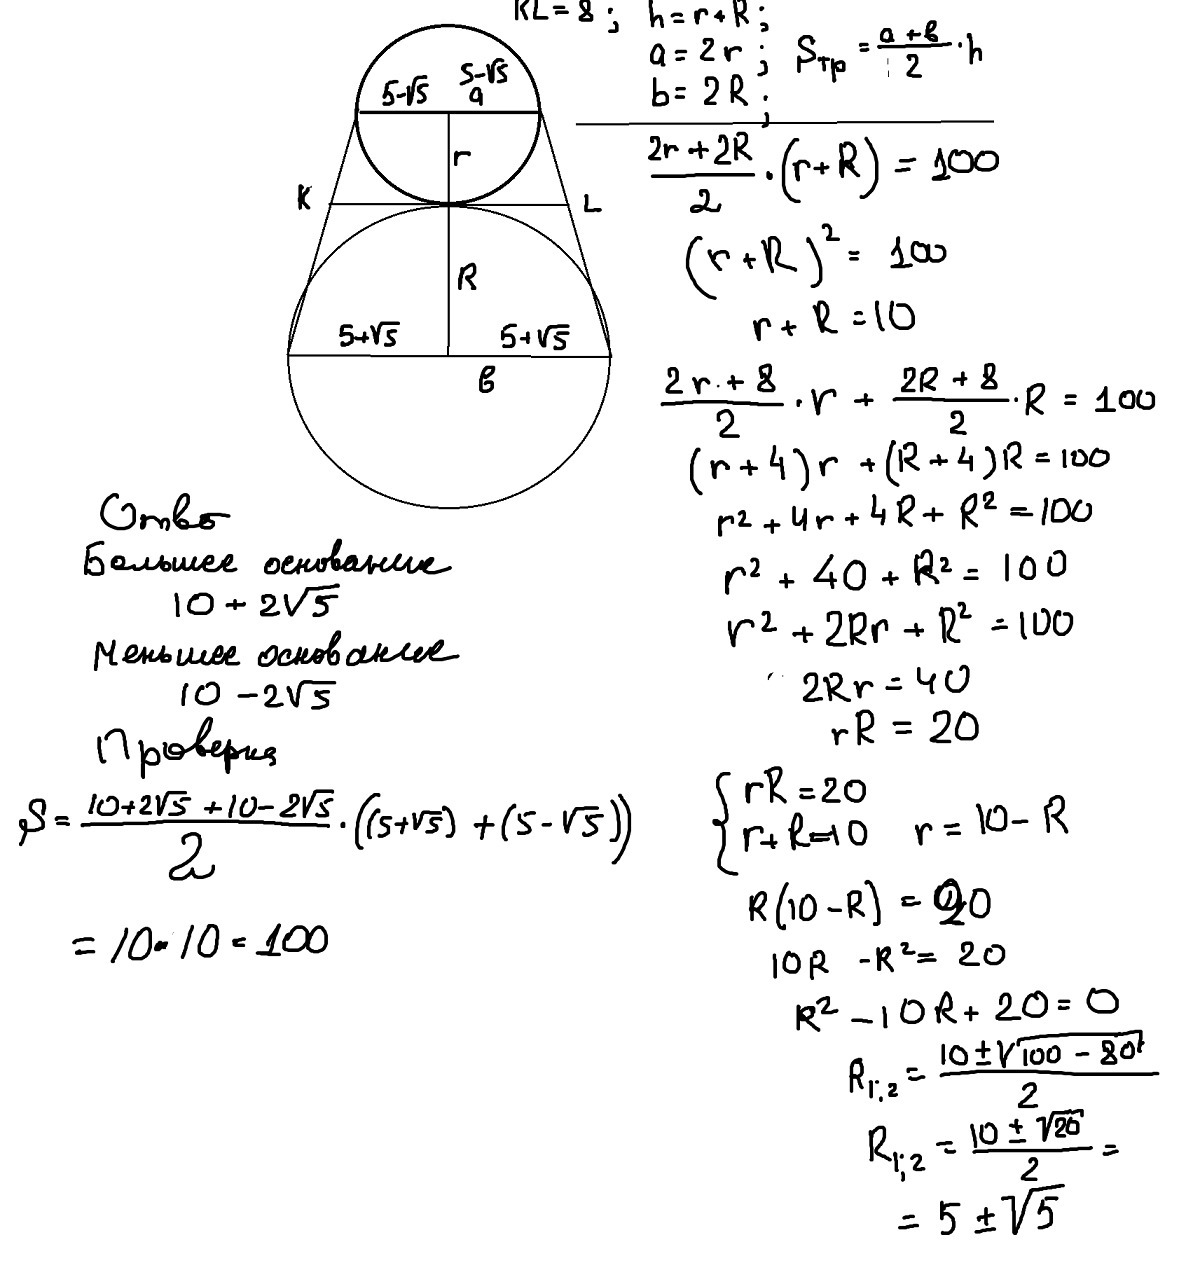 KL = 8 ; h = r + R ;
a = 2r ; Sтр = (a + в)/2 · h
b = 2R ;
5-√5 5-√5
a
r
K L
R
5+√5 5+√5
в
(2r + 2R)/2 · (r + R) = 100
(r + R)² = 100
r + R = 10
(2r + 8)/2 · r + (2R + 8)/2 · R = 100
(r + 4)r + (R + 4)R = 100
r² + 4r + 4R + R² = 100
r² + 40 + R² = 100
r² + 2Rr + R² = 100
2Rr = 40
rR = 20
{ rR = 20
r + R = 10 r = 10 - R
R(10 - R) = 20
10R - R² = 20
R² - 10R + 20 = 0
R1;2 = (10 ± √(100 - 80))/2
R1;2 = (10 ± √20)/2 =
= 5 ± √5
Большее основание
10 + 2√5
Меньшее основание
10 - 2√5
Проверка
S = (10+2√5 + 10-2√5)/2 · ((5+√5) + (5-√5))
= 10 · 10 = 100